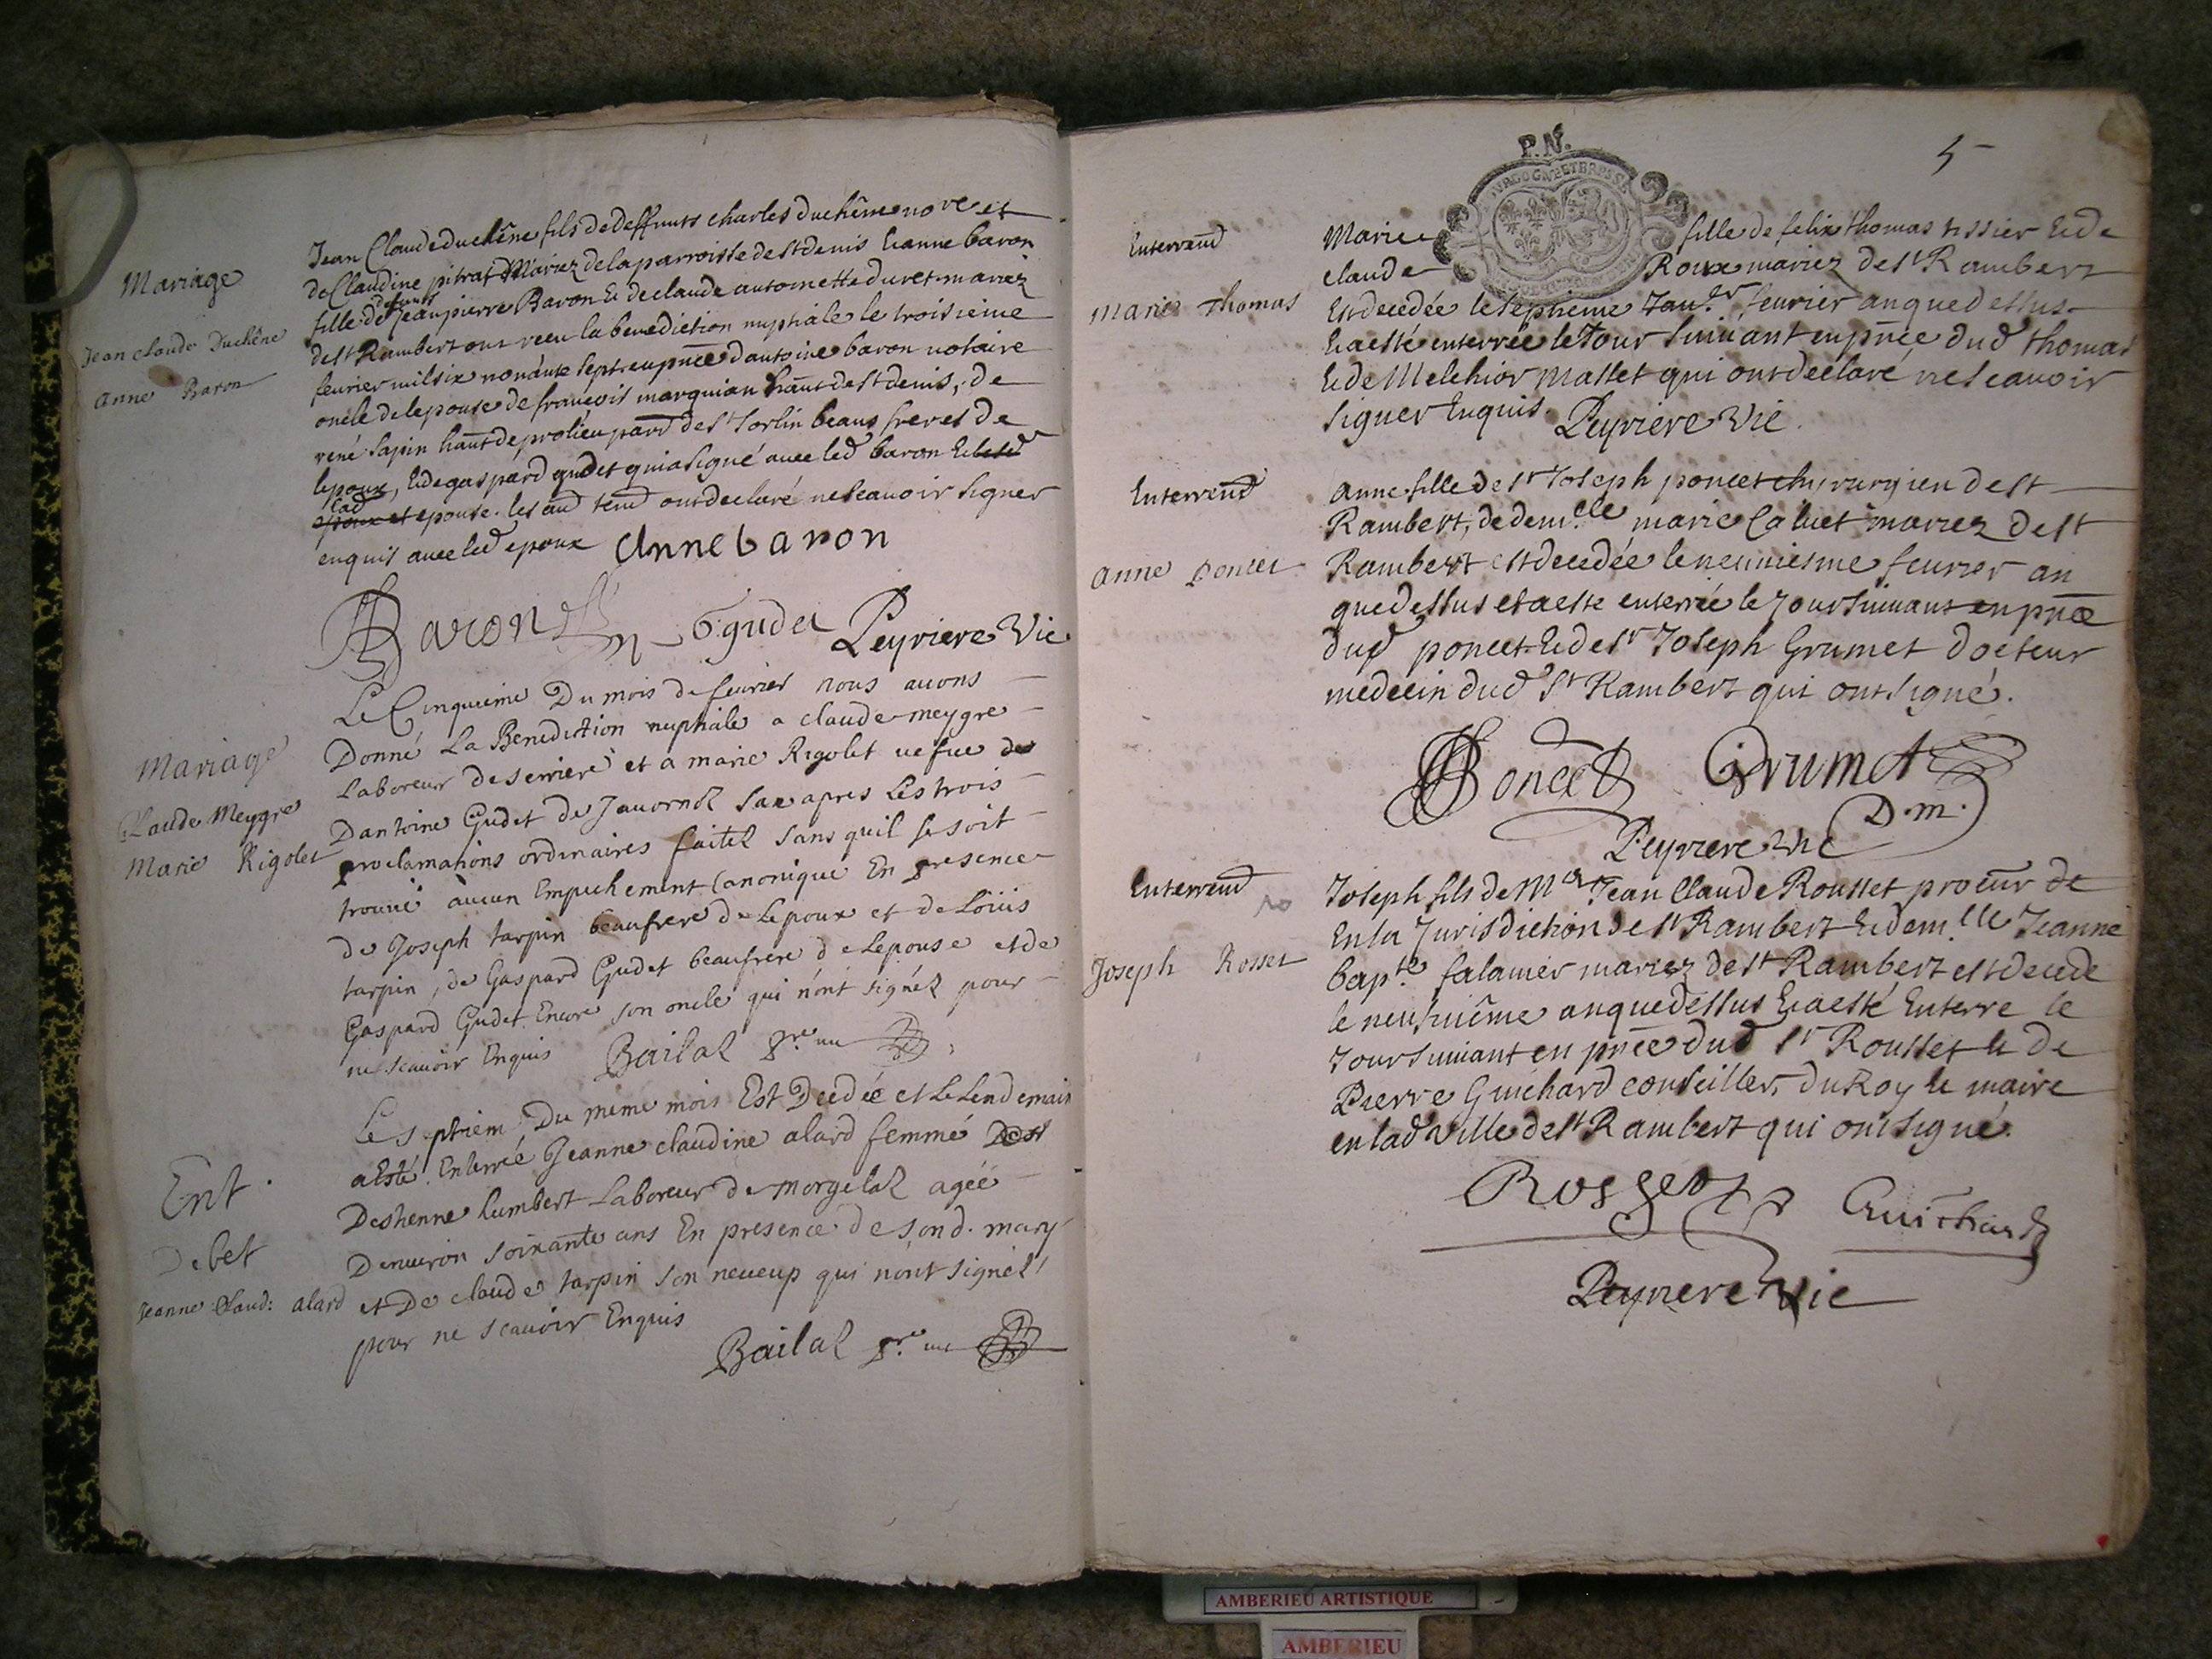 Mariage
Jean claude Duchêne
Anne Baron
Jean Claude duchêne fils de deffunts charles duchêne no.re et
de Claudine pitrat Mariez de la parroisse de st denis & anne baron
fille de defunts jean pierre Baron & de claude antoinette duret mariez
de st Rambert ont receu la benediction nuptiale le troisieme
feurier mil six nonánte sept en pñce d'antoine baron notaire
oncle de lepouse de francois marquian hãnt de st denis, de
rené sapin hãnt de prolieu parõ de st sorlin beaus freres de
lepoux, & de gaspard gudet qui a signé auec led baron &
lad epouse. les aud temd ont declaré ne scauoir signer
enquis auec led epoux Anne baron
Baron G gudet Peyriere Vic
Mariage
Claude Meygre
Marie Rigolet
Le Cinquieme Du mois de feurier nous auons
Donné La Benediction nuptiale a claude meygre
Laboreur de serriere et a marie Rigolet uefue de
Dantoine Gudet de Jauornoz sax apres Les trois
proclamations ordinaires faitez sans quil se soit
trouué aucun Empechement Canonique En presence
de Joseph tarpin beaufrere de Lepoux et de Loüis
tarpin, de Gaspard Gudet beaufrere de Lepouse et de
Gaspard Gudet Encore son oncle qui n'ont signéz pour
ne scauoir Enquis Bailaz p.re uic
Ent.
Debet
Jeanne Claud: alard
Le septiem Du meme mois Est Decedée et Le Lendemain
a Esté Enterrée Jeanne claudine alard femme
Destienne Lambert Laboreur de morgelaz agéé
Denuiron soixante ans En presence de son d. mary
et De claude tarpin son neueup qui n'ont signéz
pour ne scauoir Enquis
Bailaz p.re uic
P.N.
BOURGOGNE ET BRESSE
5
Enterremd
Marie Thomas
Marie fille de felix thomas tissier & de
claude Roux mariez de st Rambert
Est decedée le septieme Jan.er feurier an que dessus
& a esté enterrée le Jour suiuant en pñce dud thomas
& de Melchior Mallet qui ont declaré ne scauoir
signer Enquis. Peyriere Vic.
Enterremd
Anne poncet
Anne fille de sr Joseph poncet chyrurgien de st
Rambert, de dem.lle marie Caluet mariez de st
Rambert est decedée le neuuiesme feurier an
que dessus et a este enterrée le jour suiuant en pñce
dud poncet & de sr Joseph Grumet docteur
medecin dud St Rambert qui ont signé.
Poncet Grumet
D.m.
Peyriere Vic
Enterremd
Joseph Rosset
Joseph fils de Mr Jean Claude Rousset procũr de
En la Jurisdiction de st Rambert & dem.lle Jeanne
bap.te falamier mariez de st Rambert est decede
le neufuiême an que dessus & a esté Enterre le
Jour suiuant en pñce dud sr Rousset & de
Pierre Guichard conseiller du Roy & maire
en lad ville de st Rambert qui ont signé.
Rosset Guichard
Peyriere Vic
AMBERIEU ARTISTIQUE
AMBERIEU